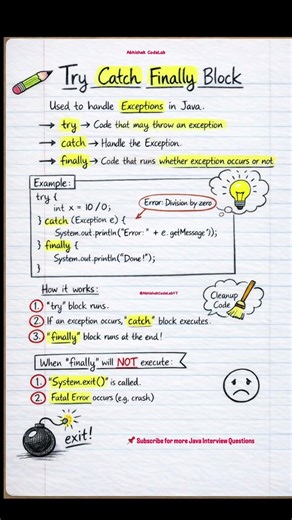 Abhishek CodeLab
Try Catch Finally Block
Used to handle Exceptions in Java.
→ try → Code that may throw an exception
→ catch → Handle the Exception.
→ finally → Code that runs whether exception occurs or not
Example:
try {
int x = 10/0;
Error: Division by zero
} catch (Exception e) {
System.out.println("Error: " + e.getMessage"));
} finally {
System.out.println("Done!");
}
@AbhishekCodeLabYT
How it works:
Cleanup
Code
1. "try" block runs.
2. If an exception occurs, "catch" block executes.
3. "finally" block runs at the end!
When "finally" will NOT execute:
1. "System.exit()" is called.
2. Fatal Error occurs (e.g. crash)
exit!
Subscribe for more Java Interview Questions